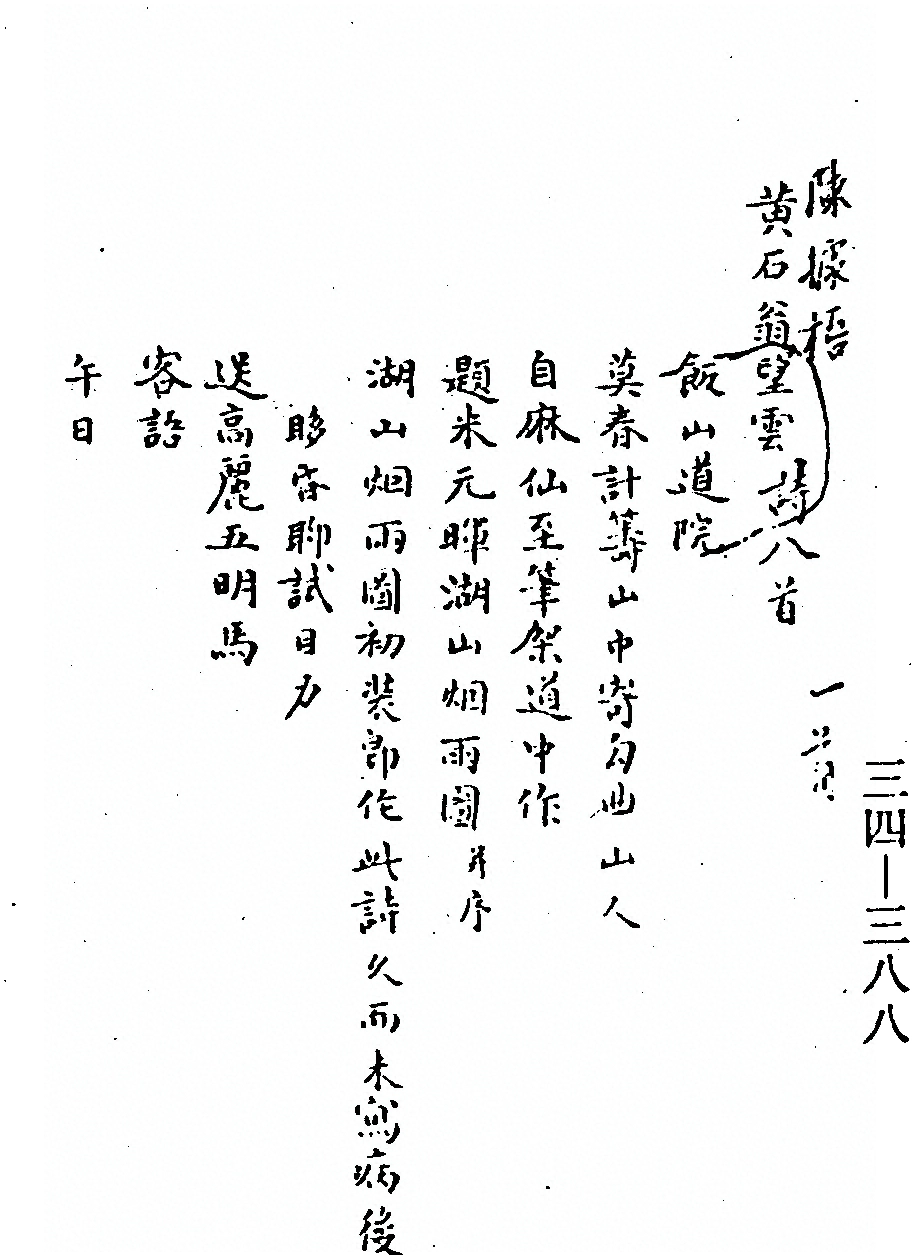 三四—三八八
陳據梧 一首
黄石翁望雲詩八首
飯山道院
莫春計籌山中寄勾曲山人
自麻仙至筆架道中作
題米元暉湖山烟雨圖并序
湖山烟雨圖初装即作此詩久而未寫病後
眵昏聊試目力
送高麗五明馬
客詔
午日